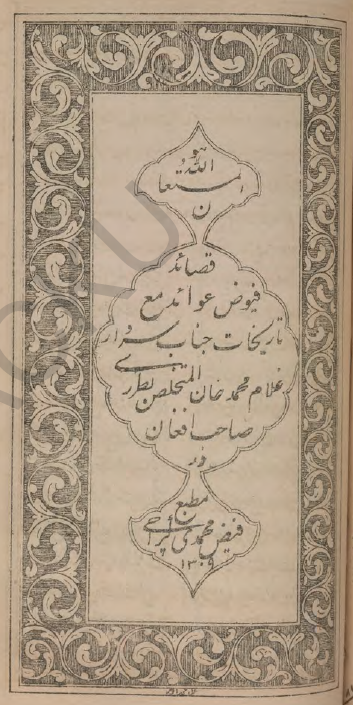 هو
الله
المستعا
ن
قصائد
فیوض عوائد مع
تاریخات جناب سردار
غلام محمد خان المتخلص بطرزی
صاحب افغان
در
مطبع
فیض محمدی کراچی
۱۳۰۹